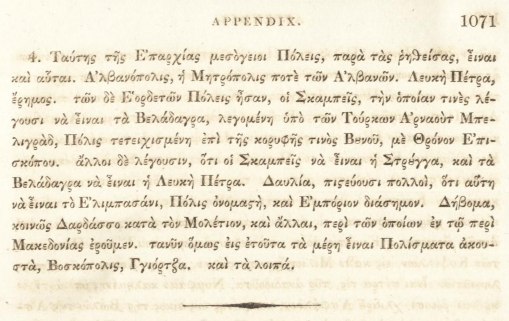 APPENDIX. 1071
4. Ταύτης τῆς Ε᾿παρχίας μεσόγειοι Πόλεις, παρὰ τὰς ῥηθείσας, εἶναι
καὶ αὗται. Α᾿λβανόπολις, ἡ Μητρόπολις ποτὲ τῶν Α᾿λβανῶν. Λευκὴ Πέτρα,
ἔρημος. τῶν δὲ Ε᾿ορδετῶν Πόλεις ἦσαν, οἱ Σκαμπεῖς, τὴν ὁποίαν τινὲς λέ-
γουσι νὰ εἶναι τὰ Βελάδαγρα, λεγομένη ὑπὸ τῶν Τούρκων Α᾿ρναοὺτ Μπε-
λιγρὰδ, Πόλις τετειχισμένη ἐπὶ τῆς κορυφῆς τινὸς Βουνοῦ, μὲ Θρόνον Ε᾿πι-
σκόπου. ἄλλοι δὲ λέγουσιν, ὅτι οἱ Σκαμπεῖς νὰ εἶναι ἡ Στροῦγγα, καὶ τὰ
Βελάδαγρα νὰ εἶναι ἡ Λευκὴ Πέτρα. Δαυλία, πιστεύουσι πολλοὶ, ὅτι αὕτη
νὰ εἶναι τὸ Ε᾿λιμπασάνι, Πόλις ὀνομαστὴ, καὶ Ε᾿μπόριον διάσημον. Δήβομα,
κοινῶς Δαρδάσσο κατὰ τὸν Μολέτιον, καὶ ἄλλαι, περὶ τῶν ὁποίων ἐν τῷ περὶ
Μακεδονίας ἐροῦμεν. τανῦν ὅμως εἰς ἐτοῦτα τὰ μέρη εἶναι Πολίσματα ἀκου-
στὰ, Βοσκόπολις, Γγιόρτζα. καὶ τὰ λοιπά.